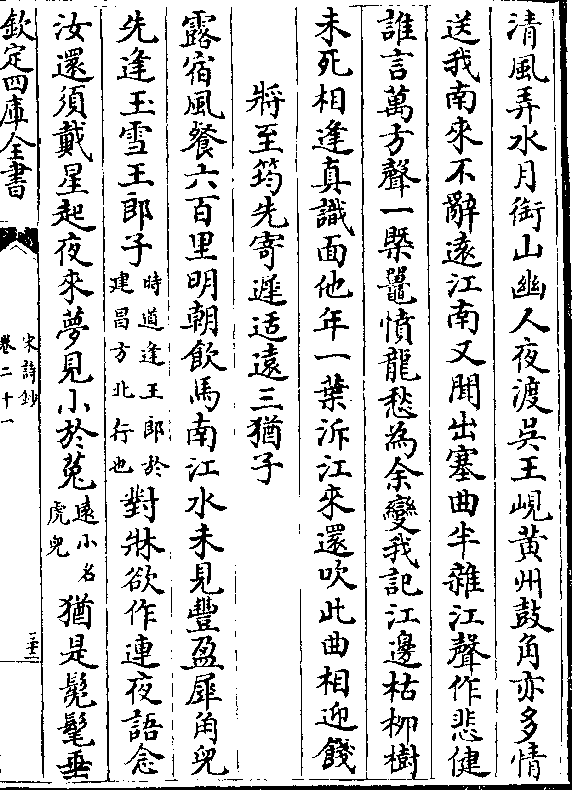 清風弄水月銜山幽人夜渡吳王峴黃州鼓角亦多情
送我南來不辭遠江南又聞出塞曲半雜江聲作悲健
誰言萬方聲一槩鼉憤龍愁為余變我記江邊枯柳樹
未死相逢真識面他年一葉泝江來還吹此曲相迎餞
將至筠先寄遲适遠三猶子
露宿風餐六百里明朝飲馬南江水未見豐盈犀角兒
先逢玉雪王郎子時道逢王郎於建昌方北行也對牀欲作連夜語念
汝還須戴星起夜來夢見小於菟遠小名虎兒猶是髧髦垂
欽定四庫全書
宋詩鈔
卷二十一